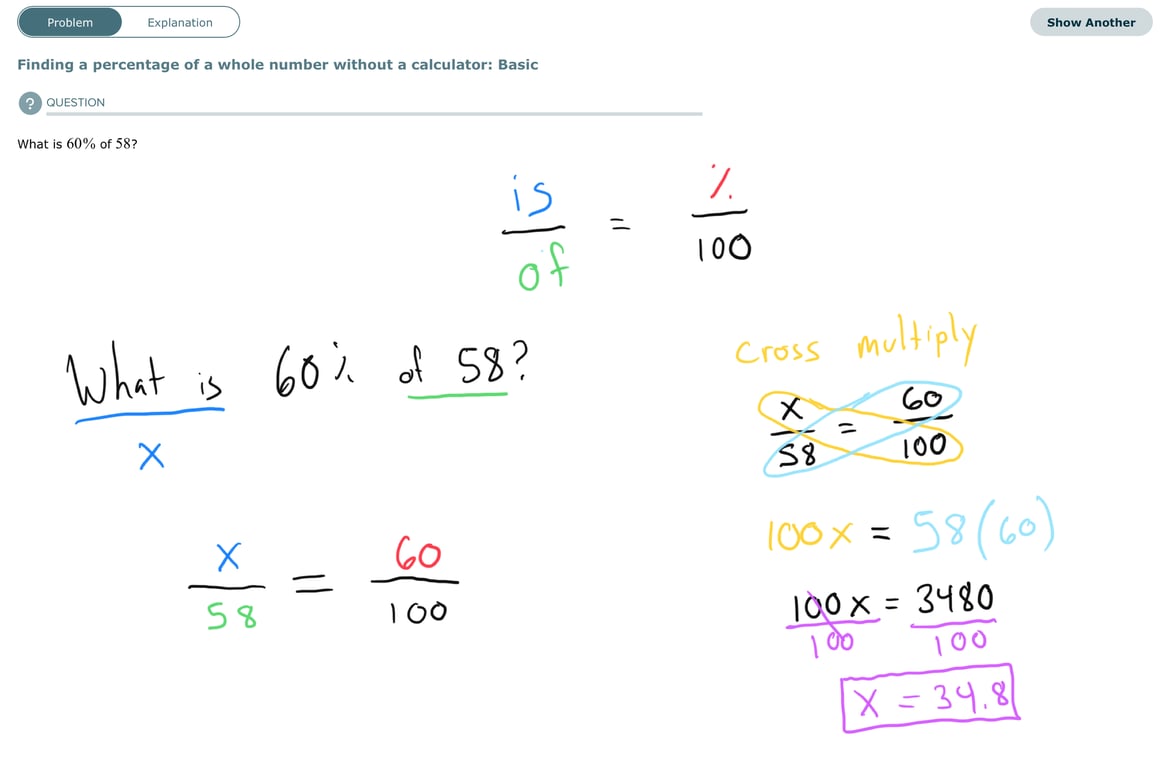 Problem Explanation Show Another
Finding a percentage of a whole number without a calculator: Basic
? QUESTION
What is 60% of 58?
is / of = % / 100
What is 60% of 58?
x
x / 58 = 60 / 100
Cross multiply
x / 58 = 60 / 100
100x = 58(60)
100x / 100 = 3480 / 100
x = 34.8